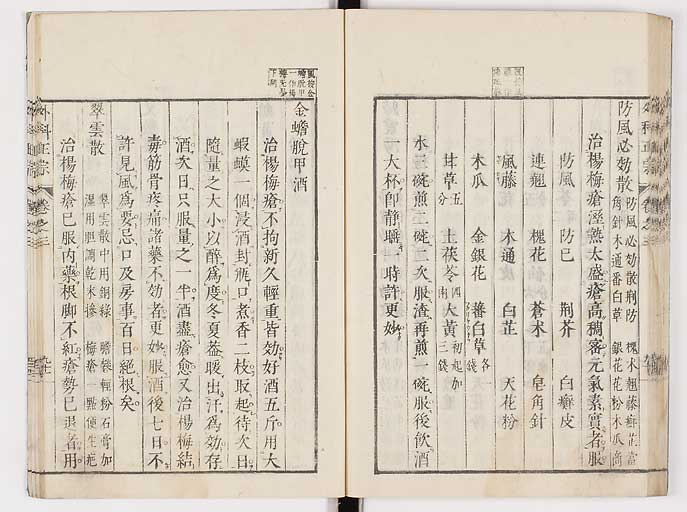 防風必効散 防風必効散荊防 槐木翹藤癬花富
角針木通番白草 銀花花粉木瓜齊
治楊梅瘡溼熱太盛瘡高稠密元氣素實者服
防風 防巳 荊芥 白癬皮
連翹 槐花 蒼木 皂角針
風藤 木通 白芷 天花粉
木瓜 金銀花 蕃白草各一錢
甘草五分 土茯苓四兩 大黃初起加三錢
水三碗煎二碗二次服渣再煎一碗服後飲酒
一大杯卽靜睡一時許更妙
金蟾脫甲酒
治楊梅瘡不拘新久輕重皆効好酒五斤用大
蝦蟆一個浸酒封瓶口煮香二枝取起待次日
隨量之大小以醉爲度冬夏葢暖出汗爲効存
酒次日只服量之一半酒盡瘡愈又治楊梅結
毒筋骨疼痛諸藥不効者更妙服酒後七日不
許見風爲要忌口及房事百日絕根矣
翠雲散 翠雲散中用銅綠 膽礬輕粉石膏加
濕用胆調乾末摻 梅瘡一點便生疤
治楊梅瘡巳服內藥根脚不紅瘡勢巳退者用
外科正宗 卷之三